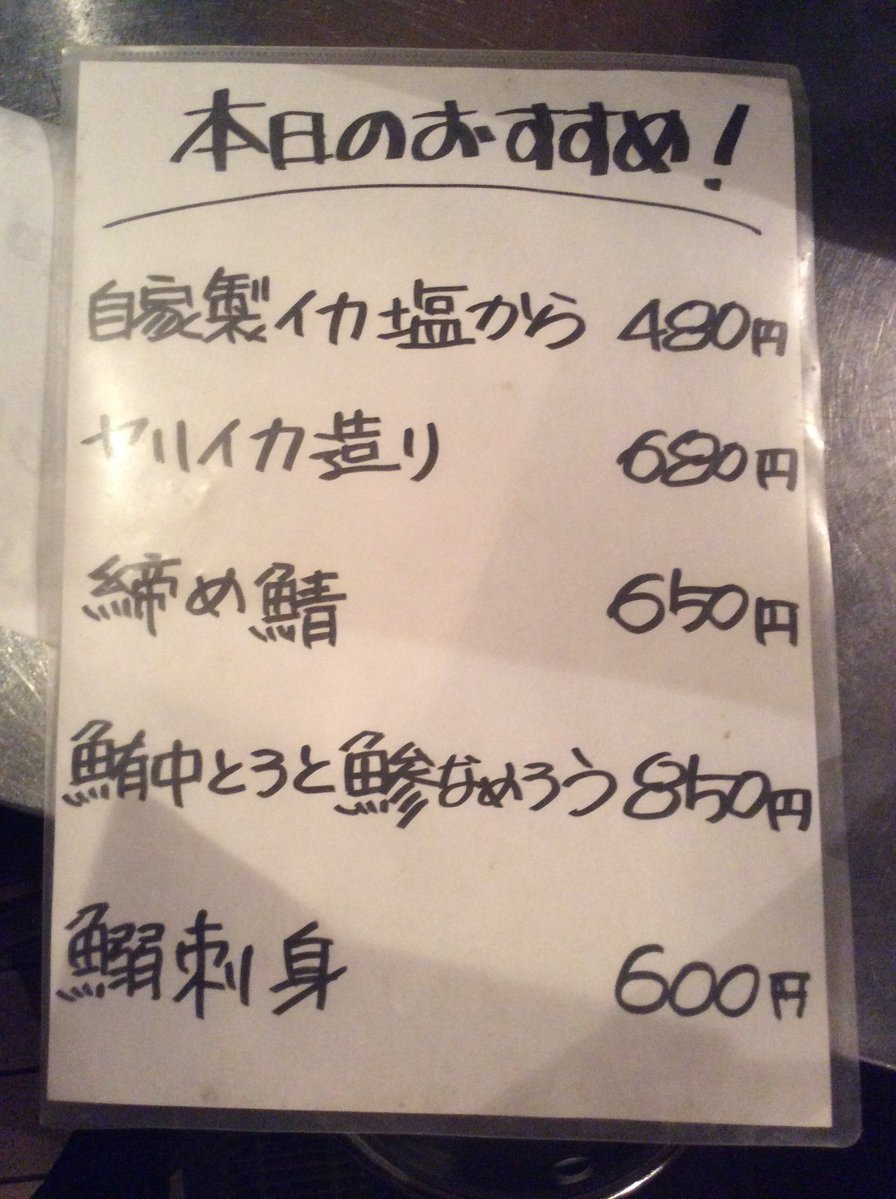 本日のおすすめ!
自家製イカ塩から 480円
ヤリイカ造り 680円
締め鯖 650円
鮪中とろと鯵なめろう 850円
鰯刺身 600円